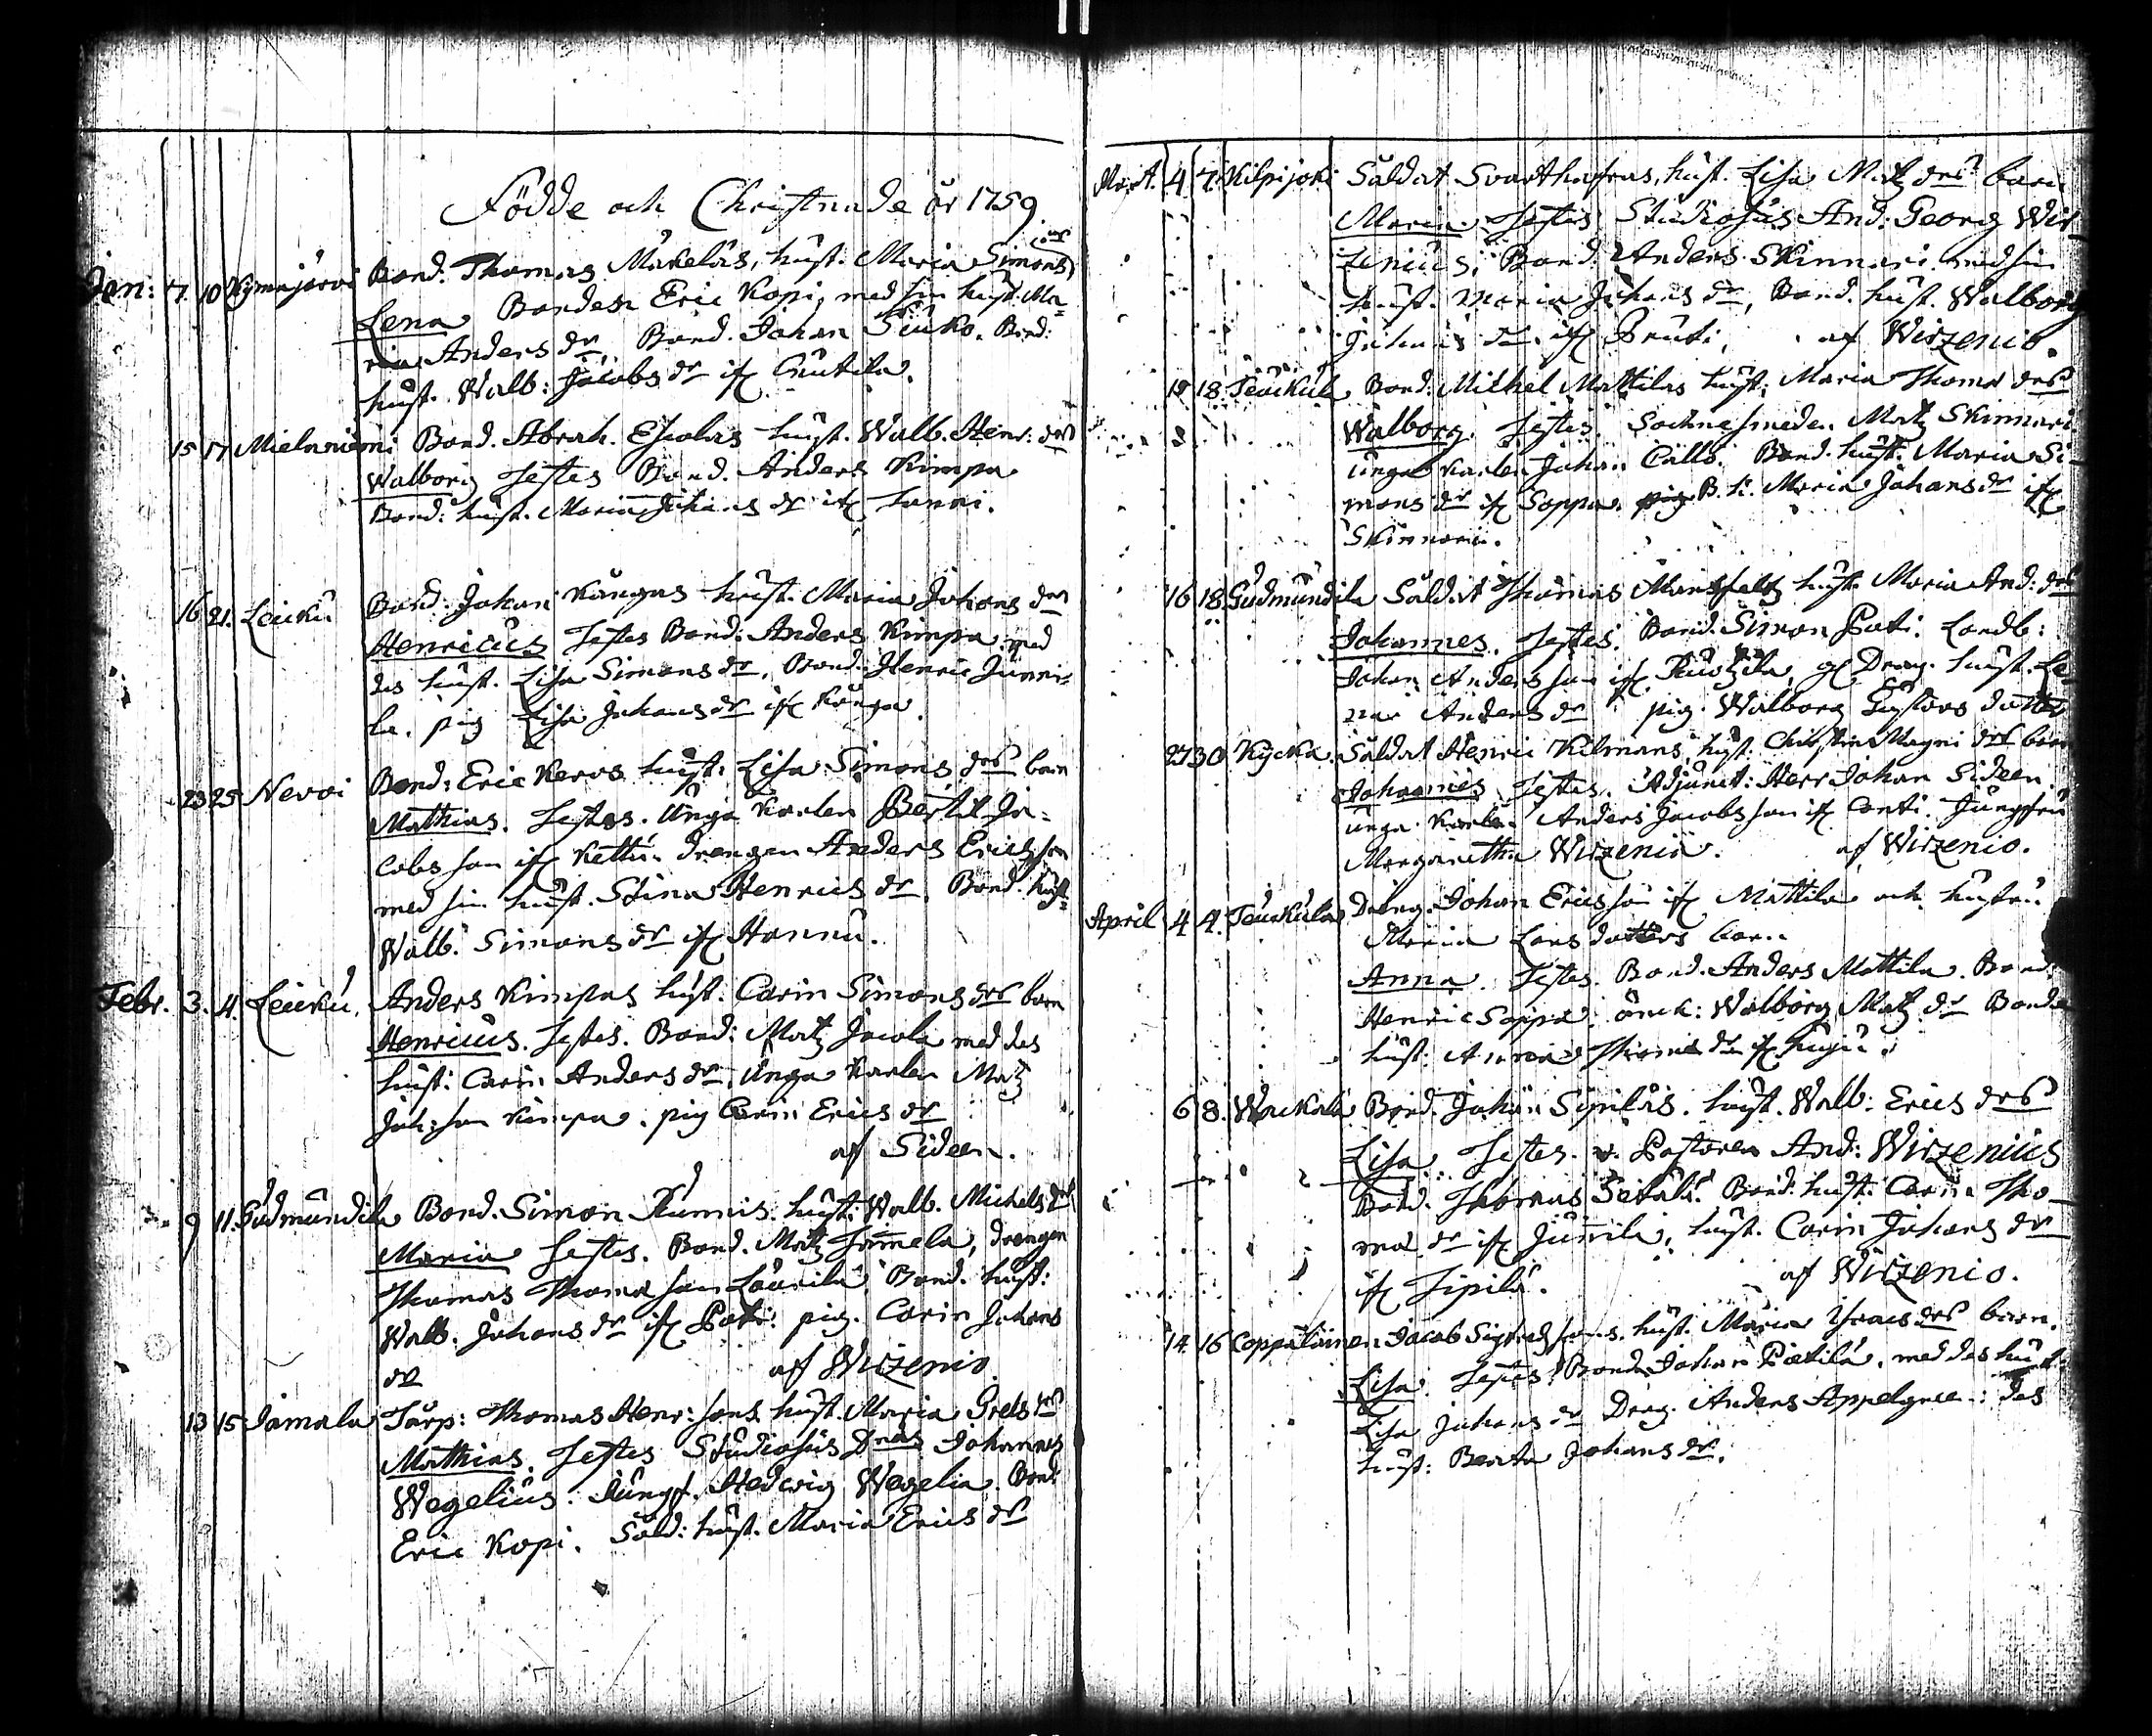 Födde och Christnade år 1759.
Jan: 7. 10 Kymnejärvi Bond. Thomas Mäkeläs, hust. Maria Simons drs
Lena Bonden Eric Kopi, med sin hust. Ma=
ria Anders dr, Bond. Johan Siuko. Bond:
hust. Walb: Jacobs dr if Cnutila.
15 17 Mielaniemi Bond. Abrah. Eskolas hust. Walb. Henr: drs
Walborg Testes Bond. Anders Kimpa
Bond: hust. Maria Johans dr if Tanni.
16 21. Leuku Bond: Johan Kångas hust. Maria Johans drs
Henricus Testes Bond: Anders Kimpa med
des hust. Lisa Simons dr, Bond. Henric Junni=
la. pig Lisa Johans dr if Kånga.
23 25 Nevoi Bond: Eric Keros hust: Lisa Simons drs barn
Mathias. Testes. Unga Karlen Bertil Ja=
cobs son if Kettu. drengen Anders Erics son
med sin hust. Stina Henrics dr. Bond. hust=
Walb. Simons dr if Hannu.
Febr. 3. 4. Leuku. Anders Kimpas hust. Carin Simons drs barn
Henricus. Testes. Bond: Matz Jacola med des
hust: Carin Anders dr, Unga Karlen Matz
Joh: son Kimpa. pig Carin Erics dr
af Sideen.
9 11. Gudmundila Bond. Simon hust: Walb. Michels drs
Maria Testes. Bond. Matz drengen
Thomas Thomæ son Laurila, Bond. hust:
Walb. Johans dr if Pati: pig. Carin Johans
dr af Wirzenio.
13 15 Jamala Torp: Thomas Henr: sons hust. Maria Grels drs
Mathias. Testes Studiosus Dnus Johannes
Wegelius: Jungf. Hedwig Wegelia. Bond:
Eric Kopi. Sold: hust. Maria Erics dr
Mart. 4 7. Kilpijoki Såldat Svarthafras, hust. Lisa Matz drs barn
Maria Testes Studiosus And: Georg Wir=
zenius, Bond. Anders Skinnari med sin
hust. Maria Johans dr, Bond. hust. Walborg
Johans dr if Pruti, af Wirzenio.
15 18. Teuckula Bond. Michel Mattilas hust. Maria Thomæ drs
Walborg. Testes. Sochnesmeden Matz Skinnari
unga Karlen Johan Callo. Bond. hust. Maria Si=
mons dr if Soppa. B. h. Maria Johans dr if
Skinnari.
16 18. Gudmundila Såldat Thomas Mansfeltz hust. Maria And: drs
Johannes. Testes. Bond. Simon Pati. Landb:
Johan Anders son if gl Drag. hust. Le=
na Anders dr pig. Walborg Gustavs dotter
27 30 Kycka. Såldat Henric Kilmans, hust. Christina Magni drs barn
Johannes Testes. Adjunct: Herr Johan Sideen
unga Karlen Anders Jacobs son if Conti. Jungfru
Margaretha Wirzenia. af Wirzenio.
April 4 4. Teuckula Dreng. Johan Erics son if Mattila och hustru
Maria Lars dotters barn
Anna. Testes. Bond. Anders Mattila. Bond.
Henric Soppa. änck: Walborg Matz dr Bonde
hust: Anna Thomæ dr if
6 8. Wackala Bond. Johan Sipiläs. hust. Walb: Erics drs
Lisa Testes. v. Pastoren And: Wirzenius
Bond. Thomas Seikälä. Bond: hust: Carin Tho=
mæ dr if Junnila, hust. Carin Johans dr
if Sipilä. af Wirzenio.
14. 16 Coppalainen Jacob Sigfreds sons. hust. Maria Ysaacs drs barn.
Lisa. Testes. Bonden Johan Pietilä. med des hust:
Lisa Johans dr Drag. Anders Appelgren: des
hust: Beata Johans dr.